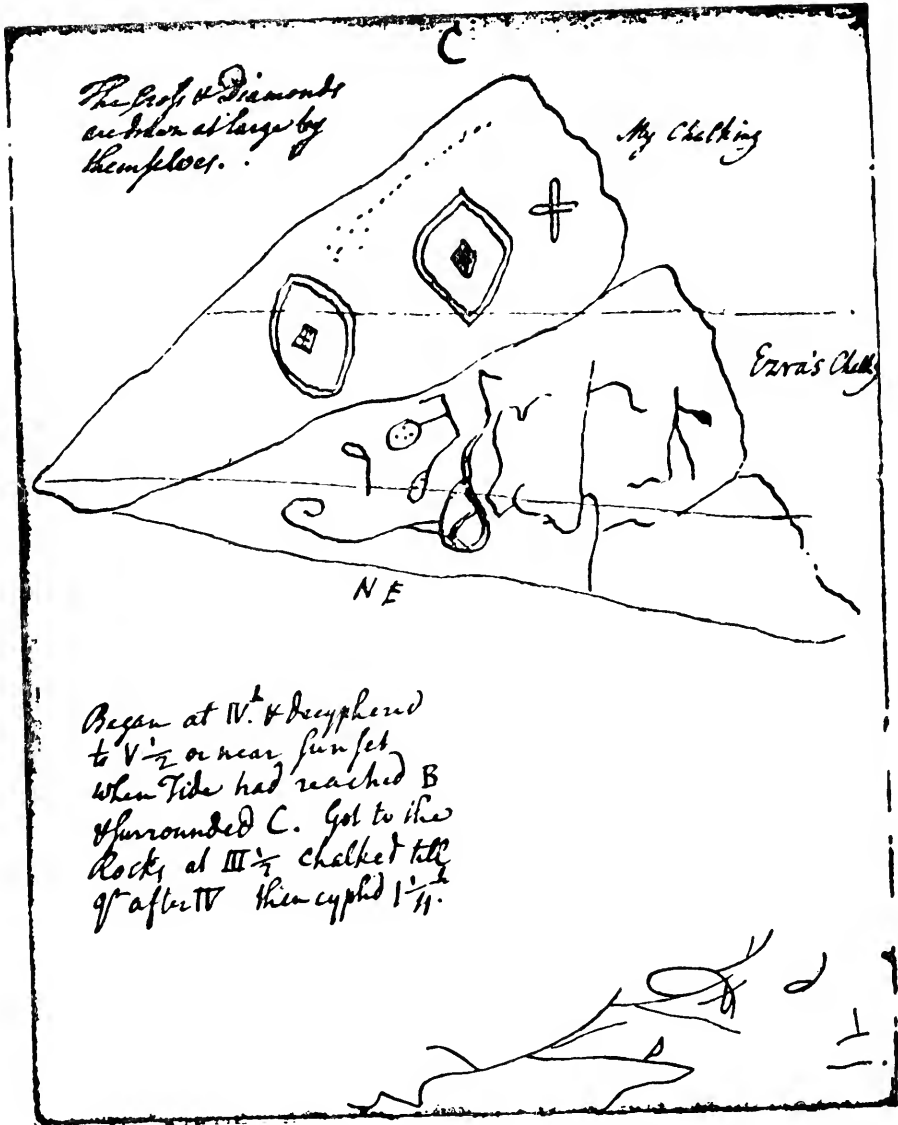 C
The Cross & Diamonds
are drawn at large by
themselves.
My Chalking
Ezra's Chalk
N E
Began at IV.h & decyphered
to V 1/2 or near Sun set
when Tide had reached B
& surrounded C. Got to the
Rocks at III 1/2 chalked till
qr after IV then cyphd 1 1/4 h.